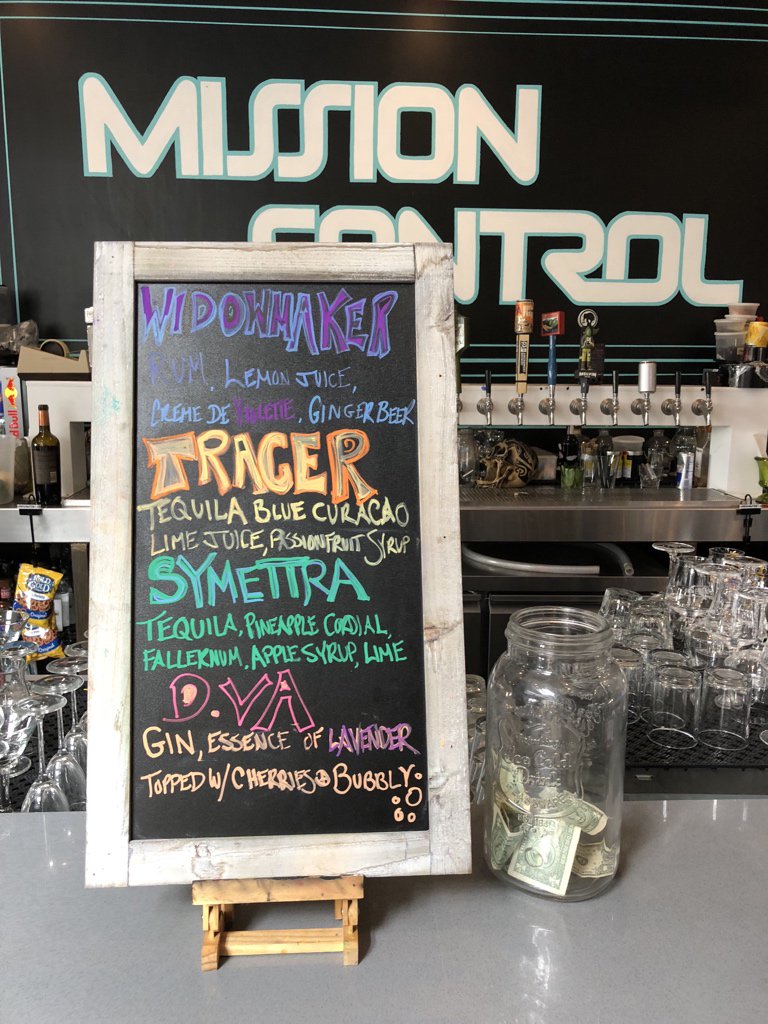 MISSION
CONTROL
WIDOWMAKER
RUM, LEMON JUICE,
CREME DE VIOLETTE, GINGER BEER
TRACER
TEQUILA BLUE CURACAO
LIME JUICE, PASSIONFRUIT SYRUP
SYMETTRA
TEQUILA, PINEAPPLE CORDIAL,
FALLERNUM, APPLE SYRUP, LIME
D.VA
GIN, ESSENCE OF LAVENDER
TOPPED W/ CHERRIES & BUBBLY
RedBull
Ice Cold
Drink